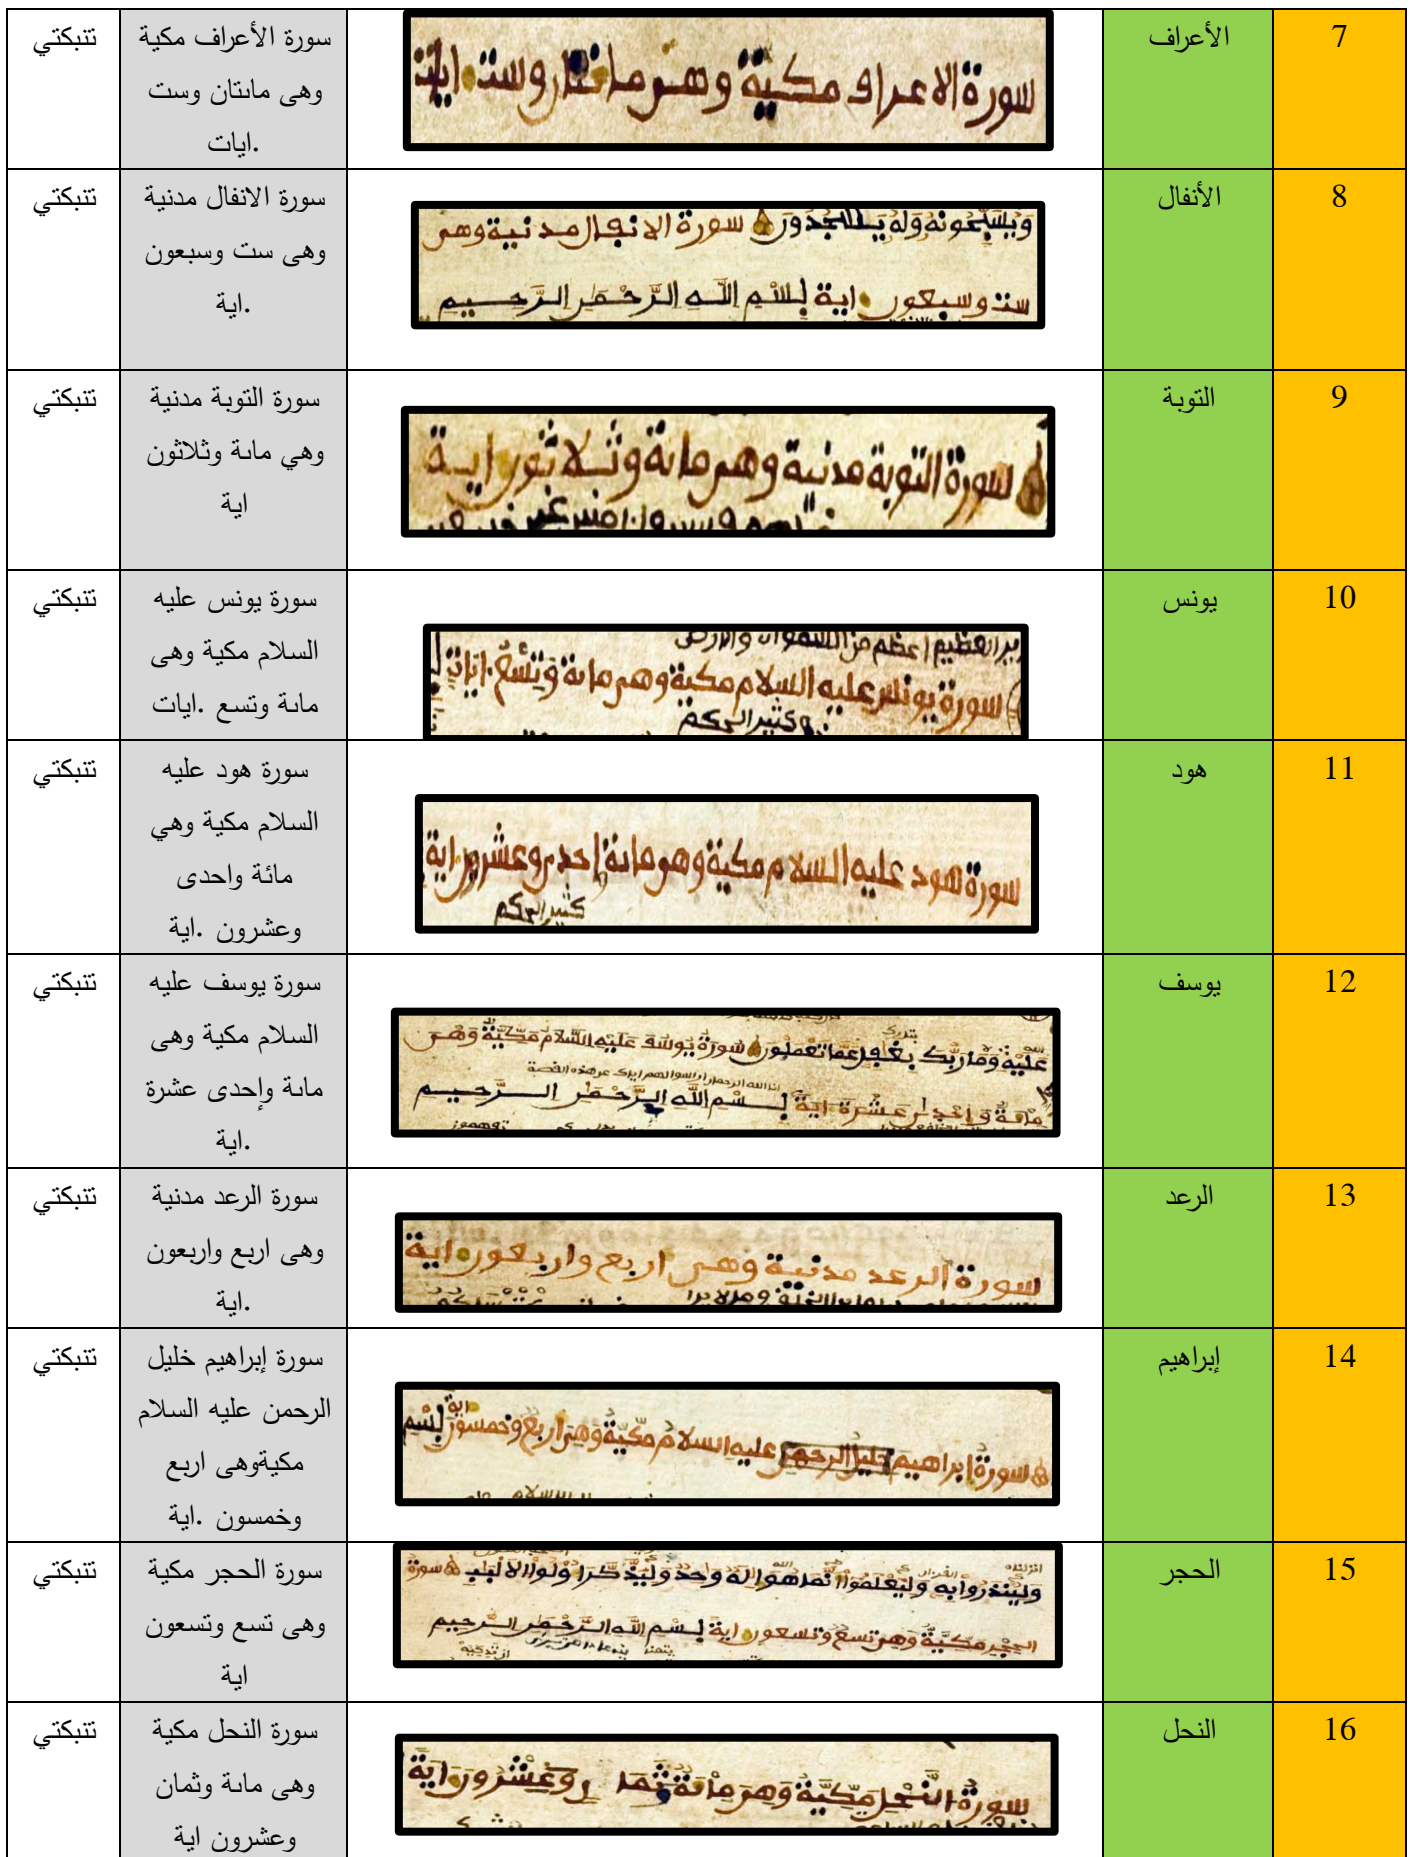 7
الأعراف
سورة الاعراف مكية وهى مائتان وست ايات
سورة الأعراف مكية
وهى مائتان وست
.ايات
تنبكتي
8
الأنفال
وَيُسَبِّحُونَهُ وَلَهُ يَسْجُدُونَ سورة الانفال مدنية وهى
ست وسبعون اية بسم الله الرحمن الرحيم
سورة الانفال مدنية
وهى ست وسبعون
.اية
تنبكتي
9
التوبة
سورة التوبة مدنية وهى مائة وثلاثون اية
سورة التوبة مدنية
وهي مائة وثلاثون
اية
تنبكتي
10
يونس
العظيم اعظم من السموات والارض
سورة يونس عليه السلام مكية وهى مائة وتسع ايات
وكثير الحكم
سورة يونس عليه
السلام مكية وهى
مائة وتسع .ايات
تنبكتي
11
هود
سورة هود عليه السلام مكية وهى مائة احدى وعشرون اية
كثير الحكم
سورة هود عليه
السلام مكية وهي
مائة واحدى
وعشرون .اية
تنبكتي
12
يوسف
عليه وما ربك بغفل عما تعملون سورة يوسف عليه السلام مكية وهى
مائة واحدى عشرة اية بسم الله الرحمن الرحيم
سورة يوسف عليه
السلام مكية وهى
مائة وإحدى عشرة
.اية
تنبكتي
13
الرعد
سورة الرعد مدنية وهى اربع واربعون اية
سورة الرعد مدنية
وهى اربع واربعون
.اية
تنبكتي
14
إبراهيم
سورة ابراهيم خليل الرحمن عليه السلام مكية وهى اربع وخمسون اية بسم
سورة إبراهيم خليل
الرحمن عليه السلام
مكيةوهى اربع
وخمسون .اية
تنبكتي
15
الحجر
ولينذروا به وليعلموا انما هو اله وحد وليذكر اولوا الالبب سورة
الحجر مكية وهى تسع وتسعون اية بسم الله الرحمن الرحيم
سورة الحجر مكية
وهى تسع وتسعون
اية
تنبكتي
16
النحل
سورة النحل مكية وهى مائة وثمان وعشرون اية
سورة النحل مكية
وهى مائة وثمان
وعشرون اية
تنبكتي